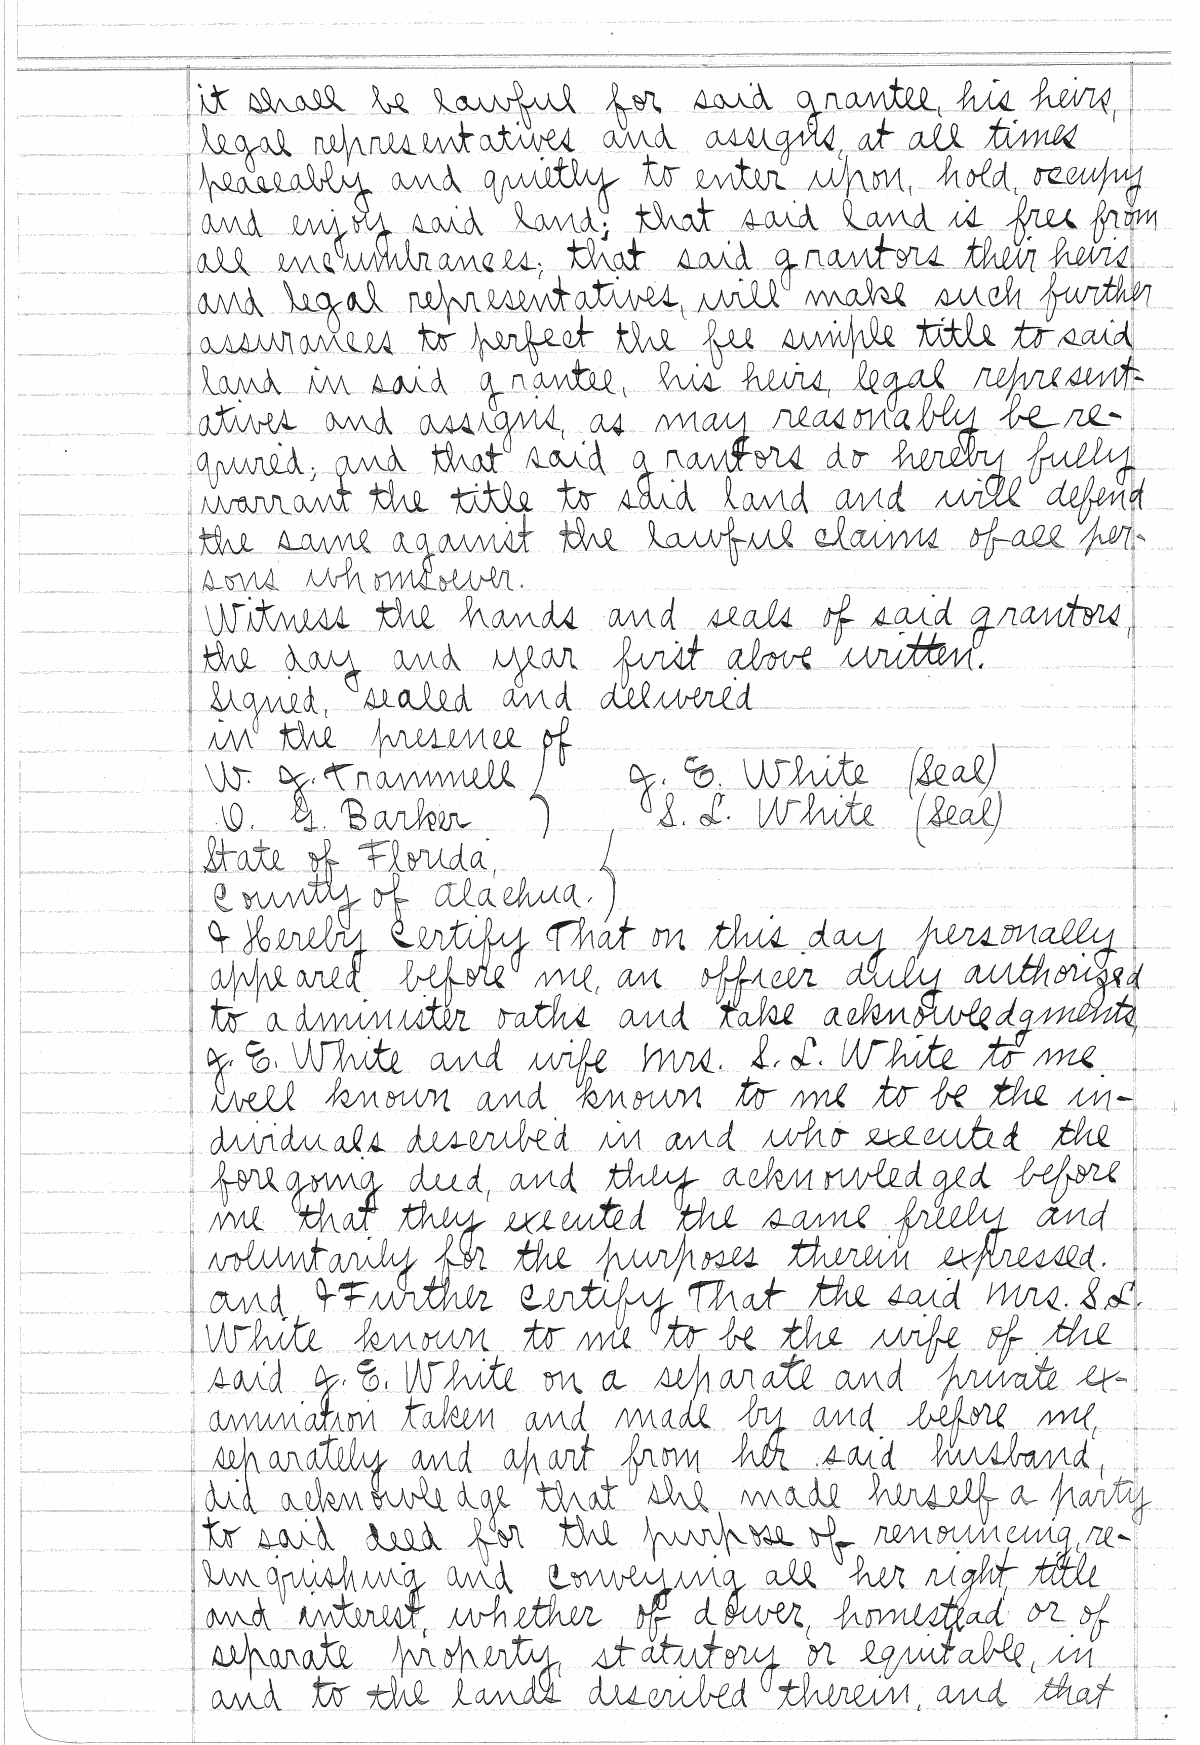 it shall be lawful for said grantee, his heirs,
legal representatives and assigns, at all times
peaceably and quietly to enter upon, hold, occupy
and enjoy said land; that said land is free from
all encumbrances; that said grantors their heirs
and legal representatives, will make such further
assurances to perfect the fee simple title to said
land in said grantee, his heirs, legal represent-
atives and assigns, as may reasonably be re-
quired; and that said grantors do hereby fully
warrant the title to said land and will defend
the same against the lawful claims of all per-
sons whomsoever.
Witness the hands and seals of said grantors,
the day and year first above written.
Signed, sealed and delivered
in the presence of
W. J. Trammell ) J. E. White (Seal)
O. G. Barker ) S. L. White (Seal)
State of Florida,
County of Alachua. )
I Hereby Certify That on this day personally
appeared before me, an officer duly authorized
to administer oaths and take acknowledgments,
J. E. White and wife Mrs. S. L. White to me
well known and known to me to be the in-
dividuals described in and who executed the
foregoing deed, and they acknowledged before
me that they executed the same freely and
voluntarily for the purposes therein expressed.
and I Further Certify That the said Mrs. S. L.
White known to me to be the wife of the
said J. E. White on a separate and private ex-
amination taken and made by and before me,
separately and apart from her said husband,
did acknowledge that she made herself a party
to said deed for the purpose of renouncing, re-
linquishing and conveying all her right, title
and interest, whether of dower, homestead or of
separate property, statutory or equitable, in
and to the lands described therein, and that